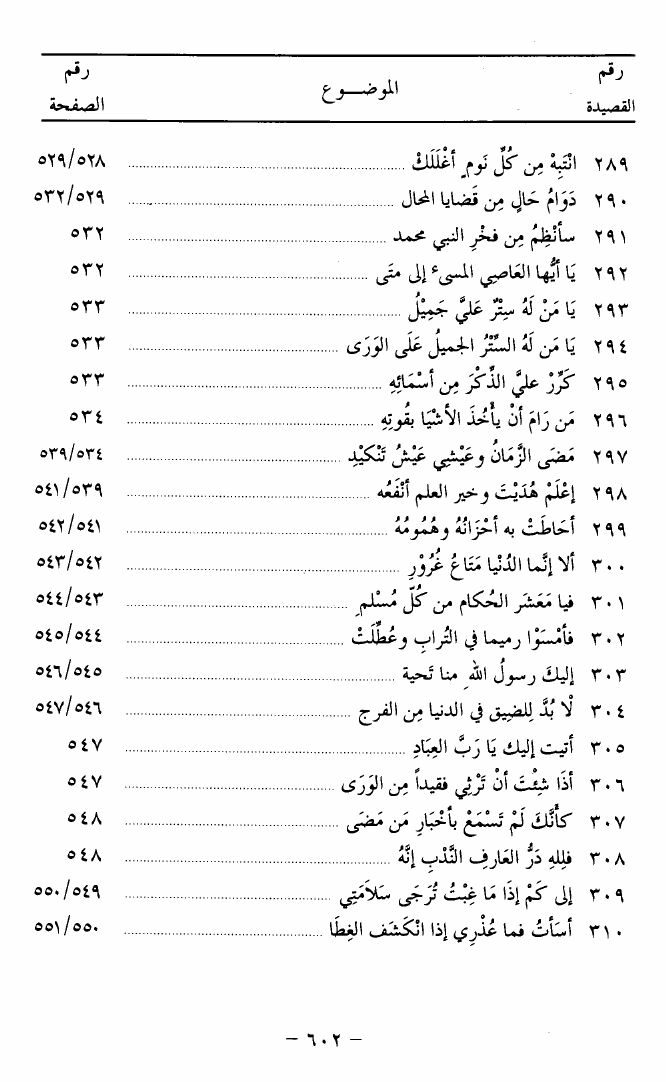 رقم القصيدة الموضـــوع رقم الصفحة
٢٨٩ انْتَبِهْ مِن كُلِّ نَومٍ أغْلَلَكْ ٥٢٩/٥٢٨
٢٩٠ دَوَامُ حَالٍ مِن قَضايا المحال ٥٣٢/٥٢٩
٢٩١ سأنْظِمُ مِن فخْرِ النبي محمد ٥٣٢
٢٩٢ يَا أيُّها العَاصِي المسىء إلى متَى ٥٣٢
٢٩٣ يَا مَنْ لَهُ سِتْرٌ عَليَّ جَمِيْلُ ٥٣٣
٢٩٤ يَا مَن لَهُ السِّتْرُ الجميلُ عَلَى الوَرَى ٥٣٣
٢٩٥ كَرِّرْ عليَّ الذِّكْرَ مِن أسْمَائِهِ ٥٣٣
٢٩٦ مَن رَامَ أنْ يأْخُذَ الأشْيَا بقُوتِهِ ٥٣٤
٢٩٧ مَضَى الزَّمَانُ وعَيْشِي عَيْشُ تَنْكيْدِ ٥٣٩/٥٣٤
٢٩٨ إعْلَمْ هُدَيْتَ وخير العلم أنْفَعُه ٥٤١/٥٣٩
٢٩٩ أحَاطَتْ به أحْزَانُهُ وهُمُومُهُ ٥٤٢/٥٤١
٣٠٠ ألا إنَّما الدُنْيا مَتَاعُ غُرُوْرِ ٥٤٣/٥٤٢
٣٠١ فيا مَعَشَر الحُكام مِن كُلّ مُسْلمٍ ٥٤٤/٥٤٣
٣٠٢ فأمْسَوْا رميما في التُرابِ وعُطِّلَتْ ٥٤٥/٥٤٤
٣٠٣ إليكَ رسولُ اللهِ منا تَحية ٥٤٦/٥٤٥
٣٠٤ لَا بُدَّ لِلضيق في الدنيا مِن الفرج ٥٤٧/٥٤٦
٣٠٥ أتيت إليك يَا رَبَّ العِبَادِ ٥٤٧
٣٠٦ أذَا شِئْتَ أنْ تَرْثِي فقيداً مِن الوَرَى ٥٤٧
٣٠٧ كأنَّكَ لَمْ تَسْمَعْ بأخْبَارِ مَن مَضَى ٥٤٨
٣٠٨ فللهِ دَرُّ العَارِفِ النَّدْبِ إنَّهُ ٥٤٨
٣٠٩ إلى كَمْ إذَا مَا غِبْتُ تُرَجَى سَلاَمَتِي ٥٥٠/٥٤٩
٣١٠ أسَأتُ فما عُذْرِي إذا انْكَشَف الغِطَا ٥٥١/٥٥٠
– ٦٠٢ –